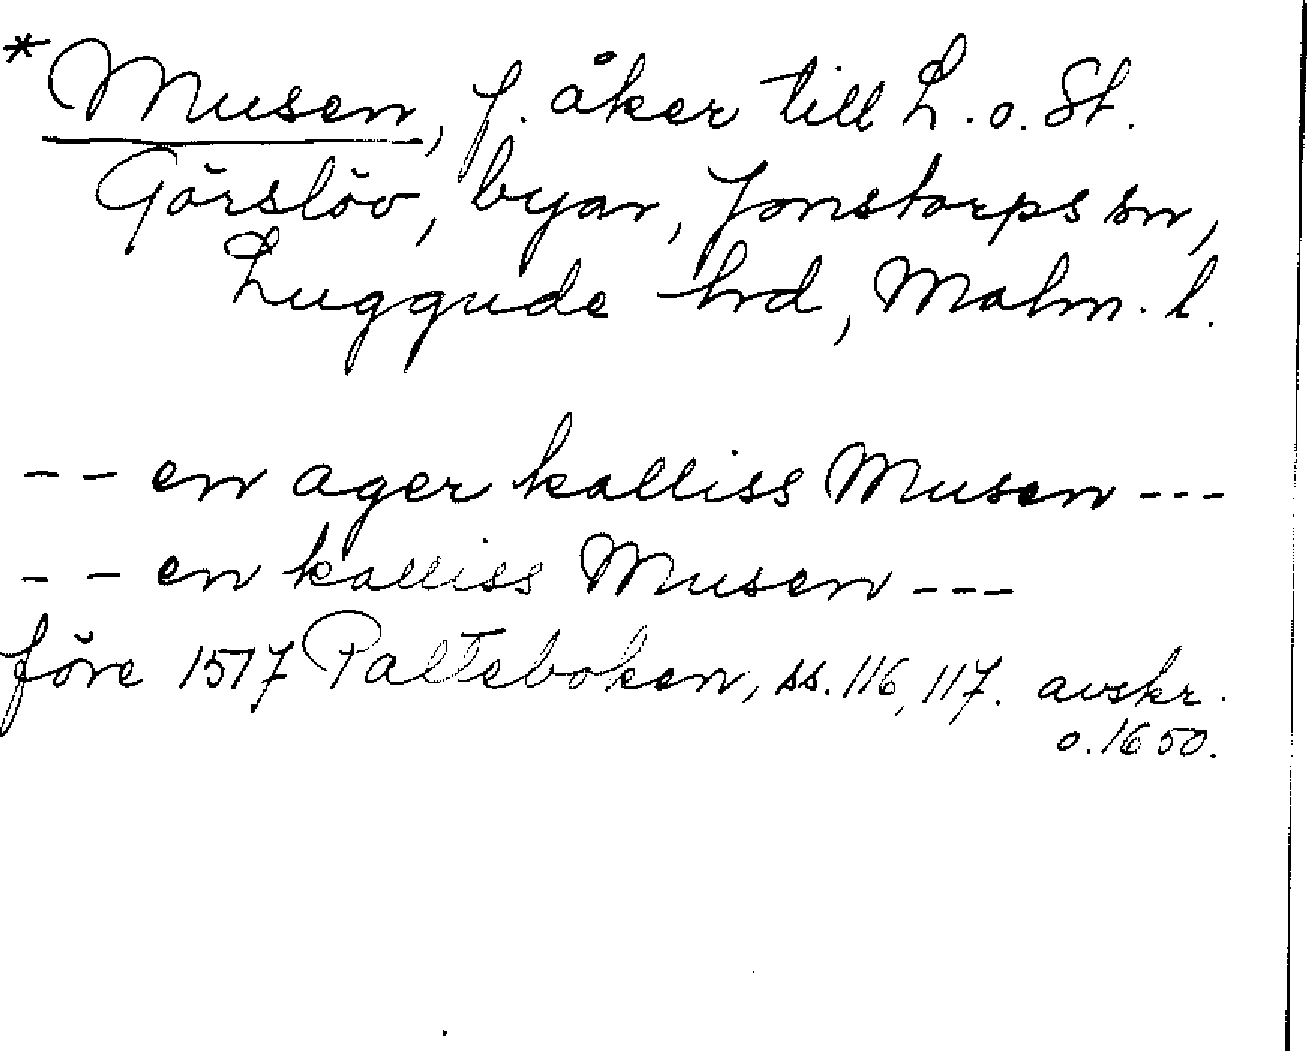 *Musen, f. åker till L. o. St.
Görslöv, byar, Jonstorps sn,
Luggude hrd, Malm. l.
-- en ager kalliss Musen ---
-- en kalliss Musen ---
före 1517 Palteboken, ss. 116, 117. avskr.
o. 1650.